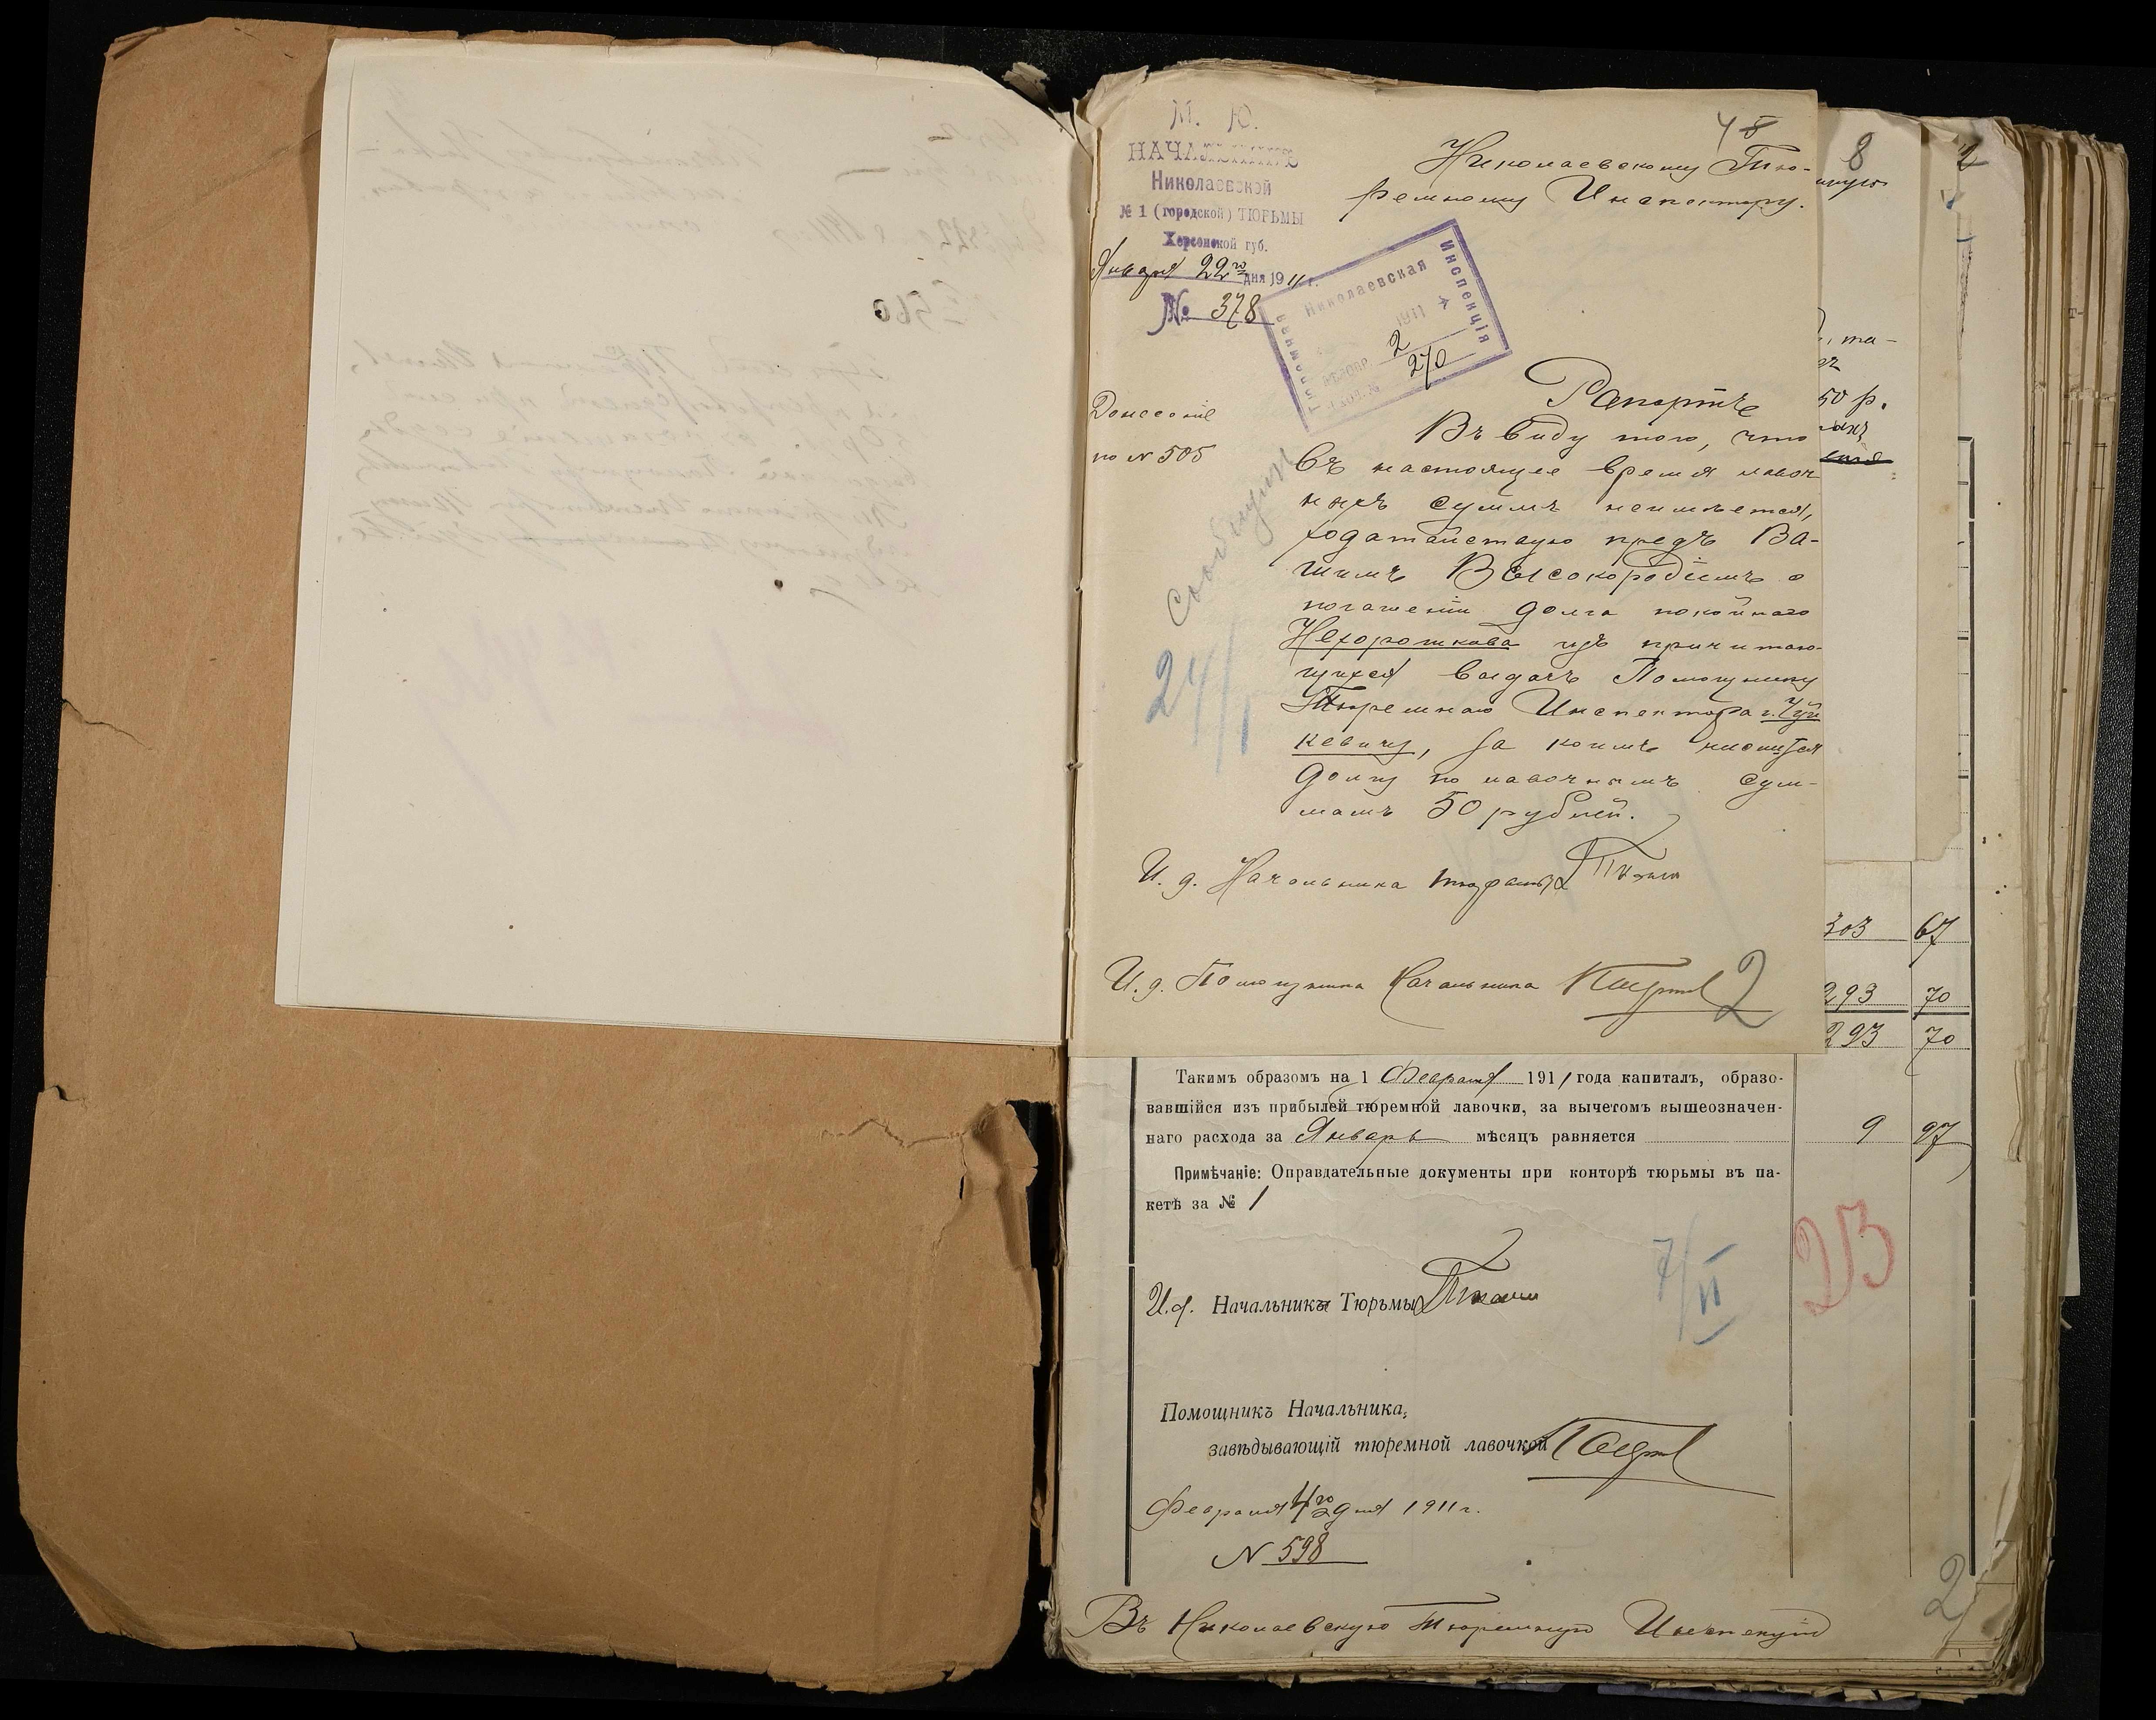 М. Ю.
НАЧАЛЬНИКЪ
Николаевской
№ 1 (городской) ТЮРЬМЫ
Херсонской губ.
Января 22го дня 1911 г.
№ 378
48
Николаевскому Тю-
ремному Инспектору.
Николаевская
Инспекція
1911
2
270
Донесеніе
по N 505
Рапортъ
Въ виду того, что
въ настоящее время лавоч
ныхъ суммъ неимѣется,
ходатайствую предъ Ва-
шимъ Высокородіемъ о
погашеніи долга покойнаго
Нехорошкова изъ причитаю-
щихся выдачѣ Помощнику
Тюремнаго Инспектора г. Чуй
кевичу, за коимъ числится
долгу по лавочнымъ сум-
мамъ 50 рублей.
Сообщить
24/I
И. д. Начальника тюрьмы
И. д. Помощника Начальника
2
8
2
50 р.
303 67
293 70
293 70
Такимъ образомъ на 1 Февраля 1911 года капиталъ, образо-
вавшійся изъ прибылей тюремной лавочки, за вычетомъ вышеозначен-
наго расхода за Январь мѣсяцъ равняется 9 97
Примѣчаніе: Оправдательные документы при конторѣ тюрьмы въ па-
кетѣ за № 1
7/II
23
И.д. Начальника Тюрьмы
Помощникъ Начальника,
завѣдывающій тюремной лавочкой
Февраля 4го дня 1911 г.
N 598
Въ Николаевскую Тюремную Инспекцію